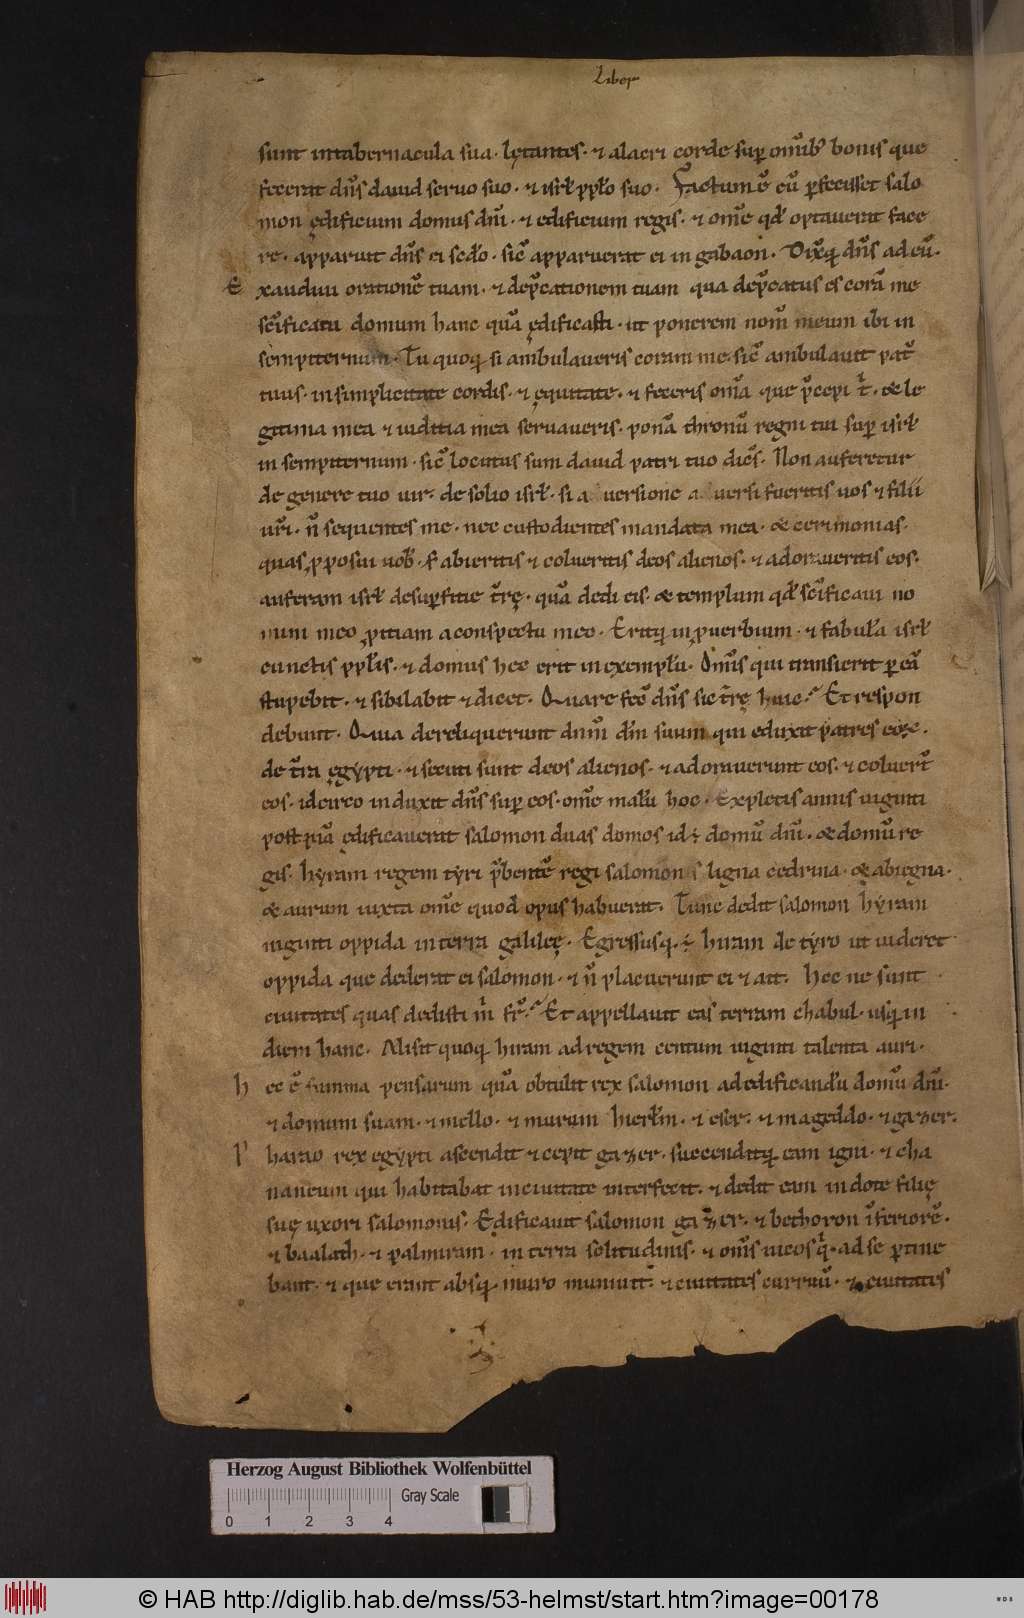 Liber
sunt intabernacula sua · lętantes · ⁊ alacri corde sup̄ om̄ib; bonis que
fecerat dn̄s dauid seruo suo · ⁊ isrł pp̄lo suo · Factum ē cū p̄fecisset salo
mon ędificium domus dn̄i · ⁊ edificium regis · ⁊ om̄e qd̄ optauerat face
re · apparuit dn̄s ei scd̄o · sic̄ apparuerat ei in gabaon · Dixitq; dn̄s ad eū ·
E xaudiui orationē tuam · ⁊ dep̄cationem tuam qua dep̄catus es corā me
sc̄ificaui domum hanc quā ędificasti · ut ponerem nom̄ meum ibi in
sempiternum · Tu quoq; si ambulaueris coram me · sic̄ ambulauit pat̄
tuus · in simplicitate cordis · ⁊ ęquitate · ⁊ feceris om̄a que p̄cepi t̄ · & le
gitima mea ⁊ iuditia mea seruaueris · ponā thronū regni tui sup̄ isrł
in sempiternum · sic̄ locutus sum dauid patri tuo dicēs · Non auferetur
de genere tuo uir · de solio isrł · si a uersione a uersi fueritis uos ⁊ filii
ur̄i · n̄ sequentes me · nec custodientes mandata mea · & cerimonias ·
quas p̄posui uob̄ · s; abieritis ⁊ colueritis deos alienos · ⁊ adoraueritis eos ·
auferam isrł desup̄fitie t̄rę · quā dedi eis · & templum qd̄ sc̄ificaui no
mini meo p̄itiam aconspectu meo · Eritq; in p̄uerbium · ⁊ fabula isrł
cunctis pp̄lis · ⁊ domus hec erit inexemplū · Om̄is qui transierit p̄ eā
stupebit · ⁊ sibilabit ⁊ dicet · Quare fec̄ dn̄s sic t̄rę huic? Et respon
debunt · Quia dereliquerunt dnm̄ dm̄ suum qui eduxit patres eoꝝ ·
de t̄ra ęgypti · ⁊ secuti sunt deos alienos · ⁊ adorauerunt eos · ⁊ coluer̄t
eos · idcirco induxit dn̄s sup̄ eos · om̄e malū hoc · Expletis annis uiginti
post quā ędificauerat salomon duas domos id ÷ domū dn̄i · & domū re
gis · hyram regem tyri p̄bentē regi salomoni ligna cedrina · & abiegna ·
& aurum iuxta om̄e quod opus habuerat · Tunc dedit salomon hyram
uiginti oppida in terra galileę · Egressusq; ÷ hiram de tyro ut uideret
oppida que dederat ei salomon · ⁊ n̄ placuerunt ei ⁊ ait · Hec ne sunt ·
ciuitates quas dedisti m̄ fr̄? Et appellauit eas terram chabul · usq; in
diem hanc · Misit quoq; hiram ad regem centum uiginti talenta auri ·
h ec ē summa pensarum quā obtulit rex salomon ad edificandū domū dn̄i ·
⁊ domum suam · ⁊ mello · ⁊ murum hierłm · ⁊ eser · ⁊ mageddo · ⁊ gazer ·
P harao rex egypti ascendit ⁊ cepit gazer · succenditq; eam igni · ⁊ cha
naneum qui habitabat in ciuitate interfecit · ⁊ dedit eam in dote filię
suę uxori salomonis · Edificauit salomon gazer · ⁊ bethoron īferiorē ·
⁊ baalath · ⁊ palmiram · in terra solitudinis · ⁊ om̄s uicos q̄ · ad se p̄tine
bant · ⁊ que erant absq; muro muniuit · ⁊ ciuitates curruū · ⁊ ciuitates
Herzog August Bibliothek Wolfenbüttel
Gray Scale
0 1 2 3 4
© HAB http://diglib.hab.de/mss/53-helmst/start.htm?image=00178